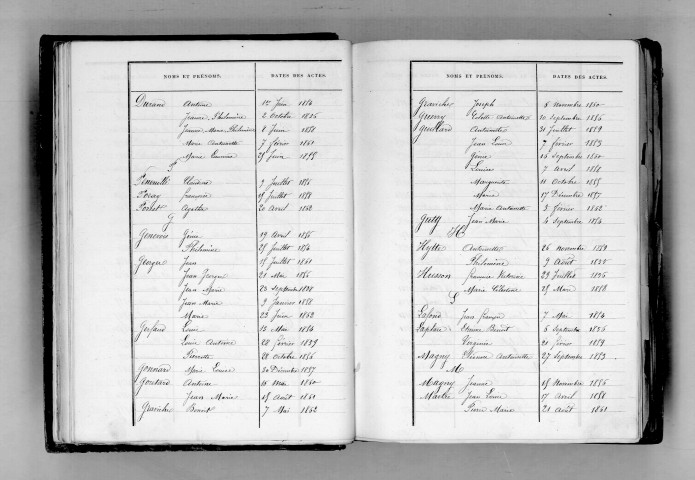 NOMS ET PRÉNOMS. DATES DES ACTES.
Durand Antoine 1er Juin 1854
Jeanne Philomène 2 Octobre
Jeanne Marie Philomène 8 Juin 1858
Marie Antoinette 7 février 1861
Marie 25 Juin
F
Claudine 2 Juillet 1856
Françoise Juillet 1858
Agathe 20 avril 1862
G
Genevois Génie 19 avril 1856
Philomène 25 Juillet 1854
Georges Jean 15 Juillet 1861
Jean Georges 21 Mai 1856
Jean Marie 23 Septembre 1858
Jean Marie 9 Janvier 1858
Marie 23 Juin 1862
Gerfaud Louis 12 Mai 1854
Louis Antoine 28 février 1859
Pierrette 28 Octobre 1856
Gonnard Marie Louise 30 Décembre 1857
Goutard Antoine 16 Mai 1860
Jean Marie 15 Août 1861
Benoit 7 Mai 1862
NOMS ET PRÉNOMS. DATES DES ACTES.
Joseph 8 Novembre 1860
Antoinette 10 Septembre 1856
Guillard Antoinette 31 Juillet 1859
Jean Louis 7 février 1853
Génie 15 Septembre 1860
Louise 7 avril 1858
Marguerite 11 Octobre 1855
Marie 17 Décembre 1857
Marie Antoinette 3 février 1862
Jean Marie 4 Septembre 1854
H
Hytte Antoinette 26 Novembre 1859
Philomène 9 Août
Husson Jeanne Victorine 23 Juillet 1856
Marie Célestine 25 Mars 1858
L
Lafond Jean François 7 Mai 1854
Laplace Etienne Benoit 5 Septembre 1856
Virginie 21 février 1859
Magny Etienne Antoinette 27 Septembre 1853
M
Magny Jeanne 15 Novembre 1856
Martin Jean Louis 17 avril 1858
Pierre Marie 21 août 1861